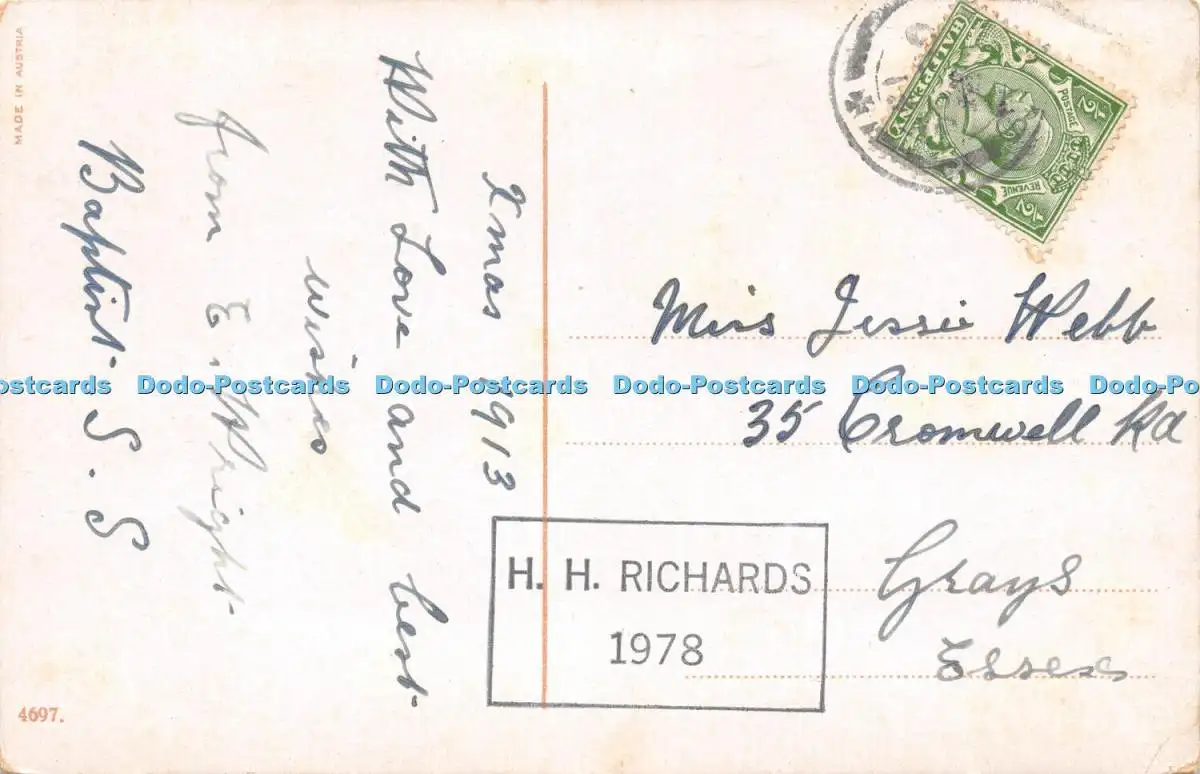 MADE IN AUSTRIA
Xmas 1913
With Love and best
wishes
from E. Wright
Baptist S. S
HALFPENNY
POSTAGE
REVENUE
1/2
1/2
Miss Jessie Webb
35 Cromwell Rd
Grays
Essex
ostcards Dodo-Postcards Dodo-Postcards Dodo-Postcards Dodo-Postcards Dodo-Pos
H. H. RICHARDS
1978
4697.